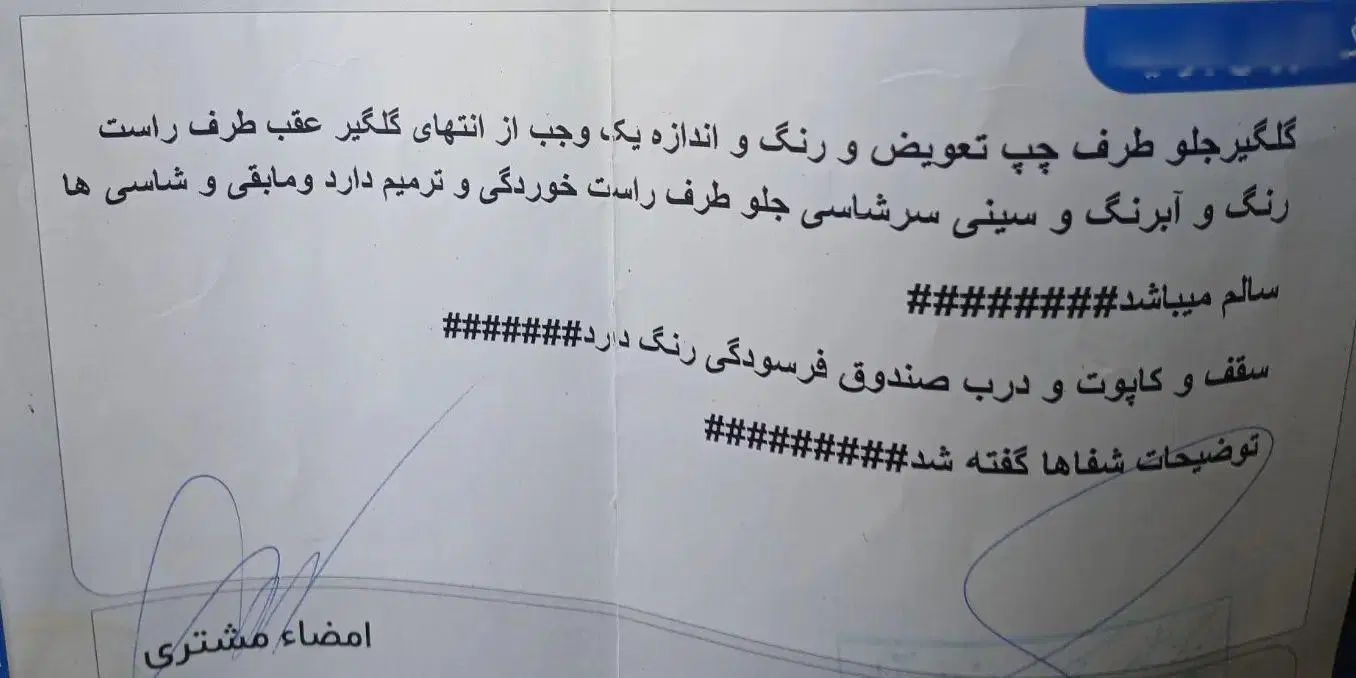 گلگیرجلو طرف چپ تعویض و رنگ و اندازه یک وجب از انتهای گلگیر عقب طرف راست
رنگ و آبرنگ و سینی سرشاسی جلو طرف راست خوردگی و ترمیم دارد ومابقی و شاسی ها
سالم میباشد########
سقف و کاپوت و درب صندوق فرسودگی رنگ دارد#######
توضیحات شفاها گفته شد#########
امضاء مشتری